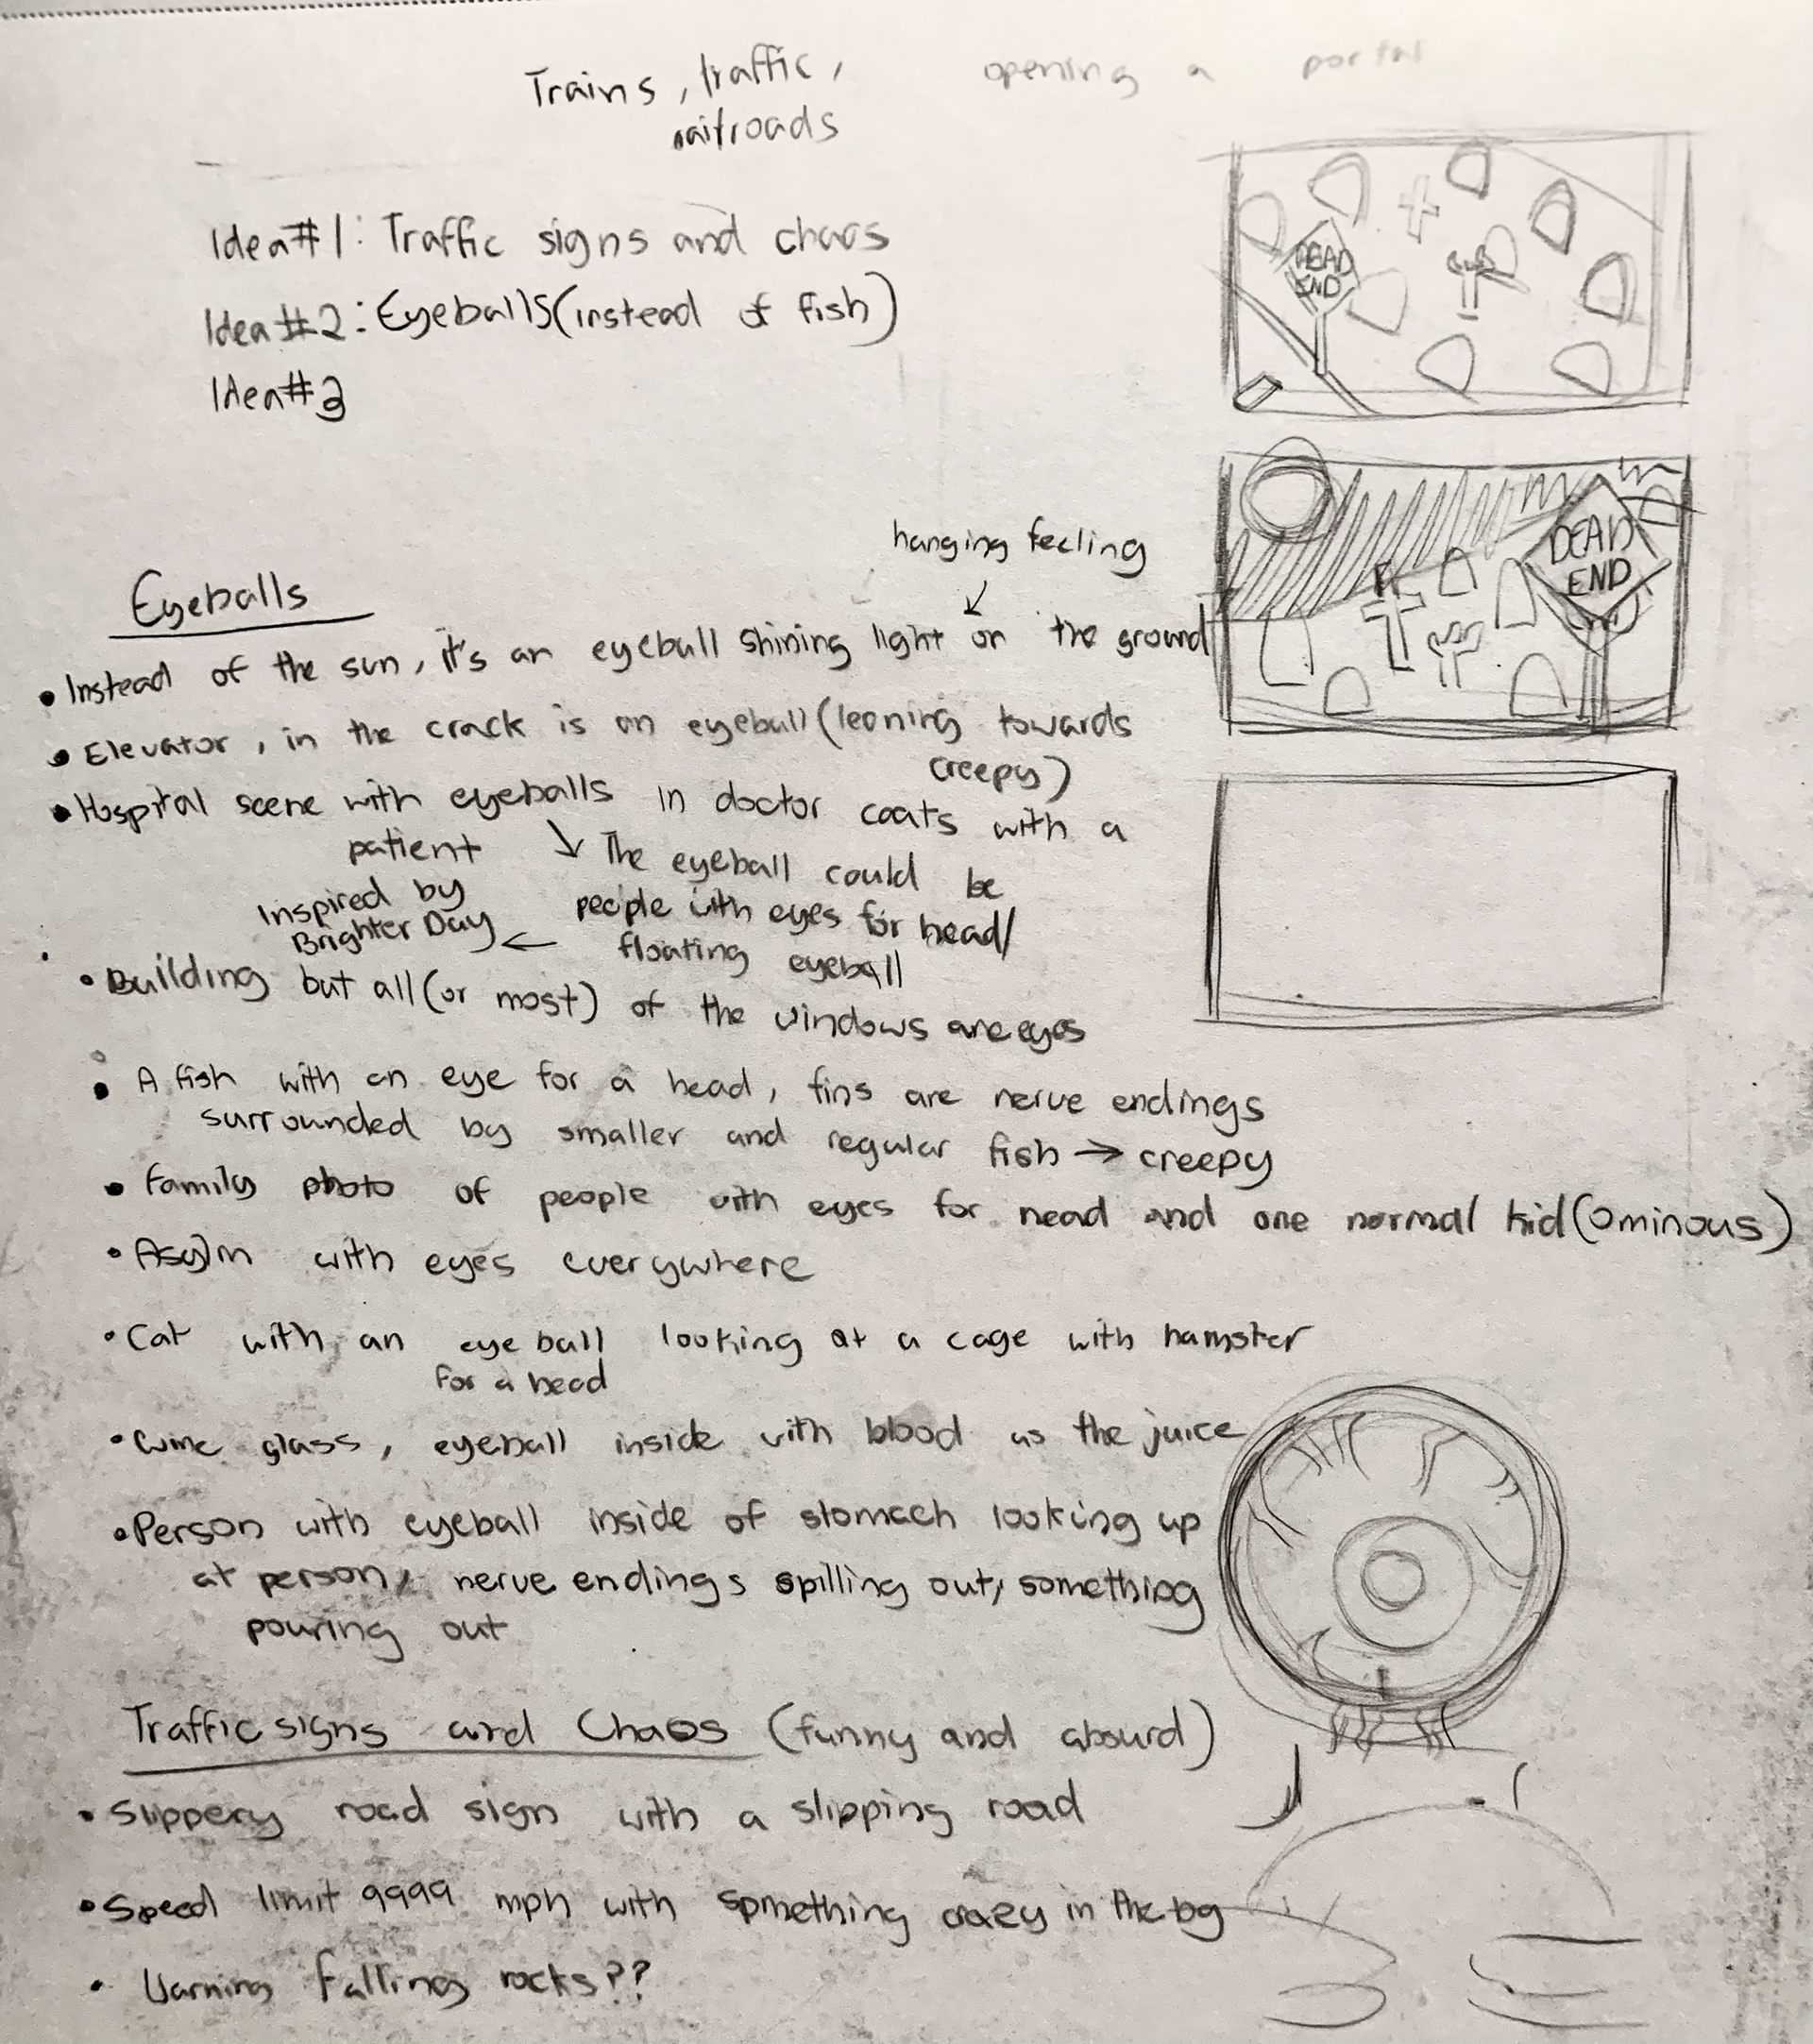 Trains, traffic,
railroads
opening a portal
Idea#1: Traffic signs and chaos
Idea#2: Eyeballs(instead of fish)
Idea#3
DEAD
END
DEAD
END
hanging feeling
Eyeballs
• Instead of the sun, it's an eyeball shining light on the ground
• Elevator, in the crack is an eyeball (leaning towards
creepy)
• Hospital scene with eyeballs in doctor coats with a
patient
↓ The eyeball could be
people with eyes for head/
floating eyeball
Inspired by
Brighter Day ←
• Building but all (or most) of the windows are eyes
• A fish with an eye for a head, fins are nerve endings
surrounded by smaller and regular fish → creepy
• Family photo of people with eyes for head and one normal kid (ominous)
• Asylm with eyes everywhere
• Cat with an eye ball looking at a cage with hamster
for a head
• Wine glass, eyeball inside with blood as the juice
• Person with eyeball inside of stomach looking up
at person, nerve endings spilling out, something
pouring out
Traffic signs and Chaos (funny and absurd)
• Slippery road sign with a slipping road
• Speed limit 9999 mph with something crazy in the bg
• Warning falling rocks??